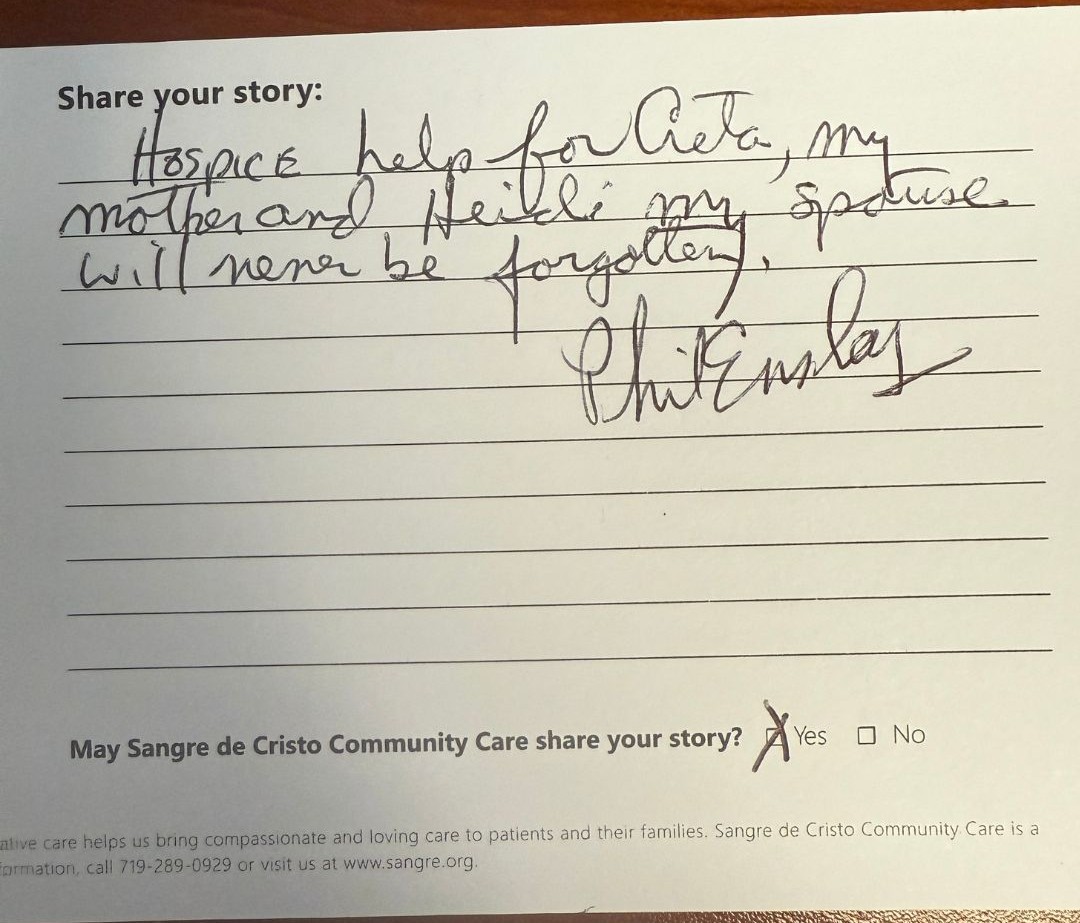 Share your story:
Hospice help for Creta, my
mother and Heidi my spouse
will never be forgotten.
Phil Ensley
May Sangre de Cristo Community Care share your story? Yes No
ative care helps us bring compassionate and loving care to patients and their families. Sangre de Cristo Community Care is a
formation, call 719-289-0929 or visit us at www.sangre.org.